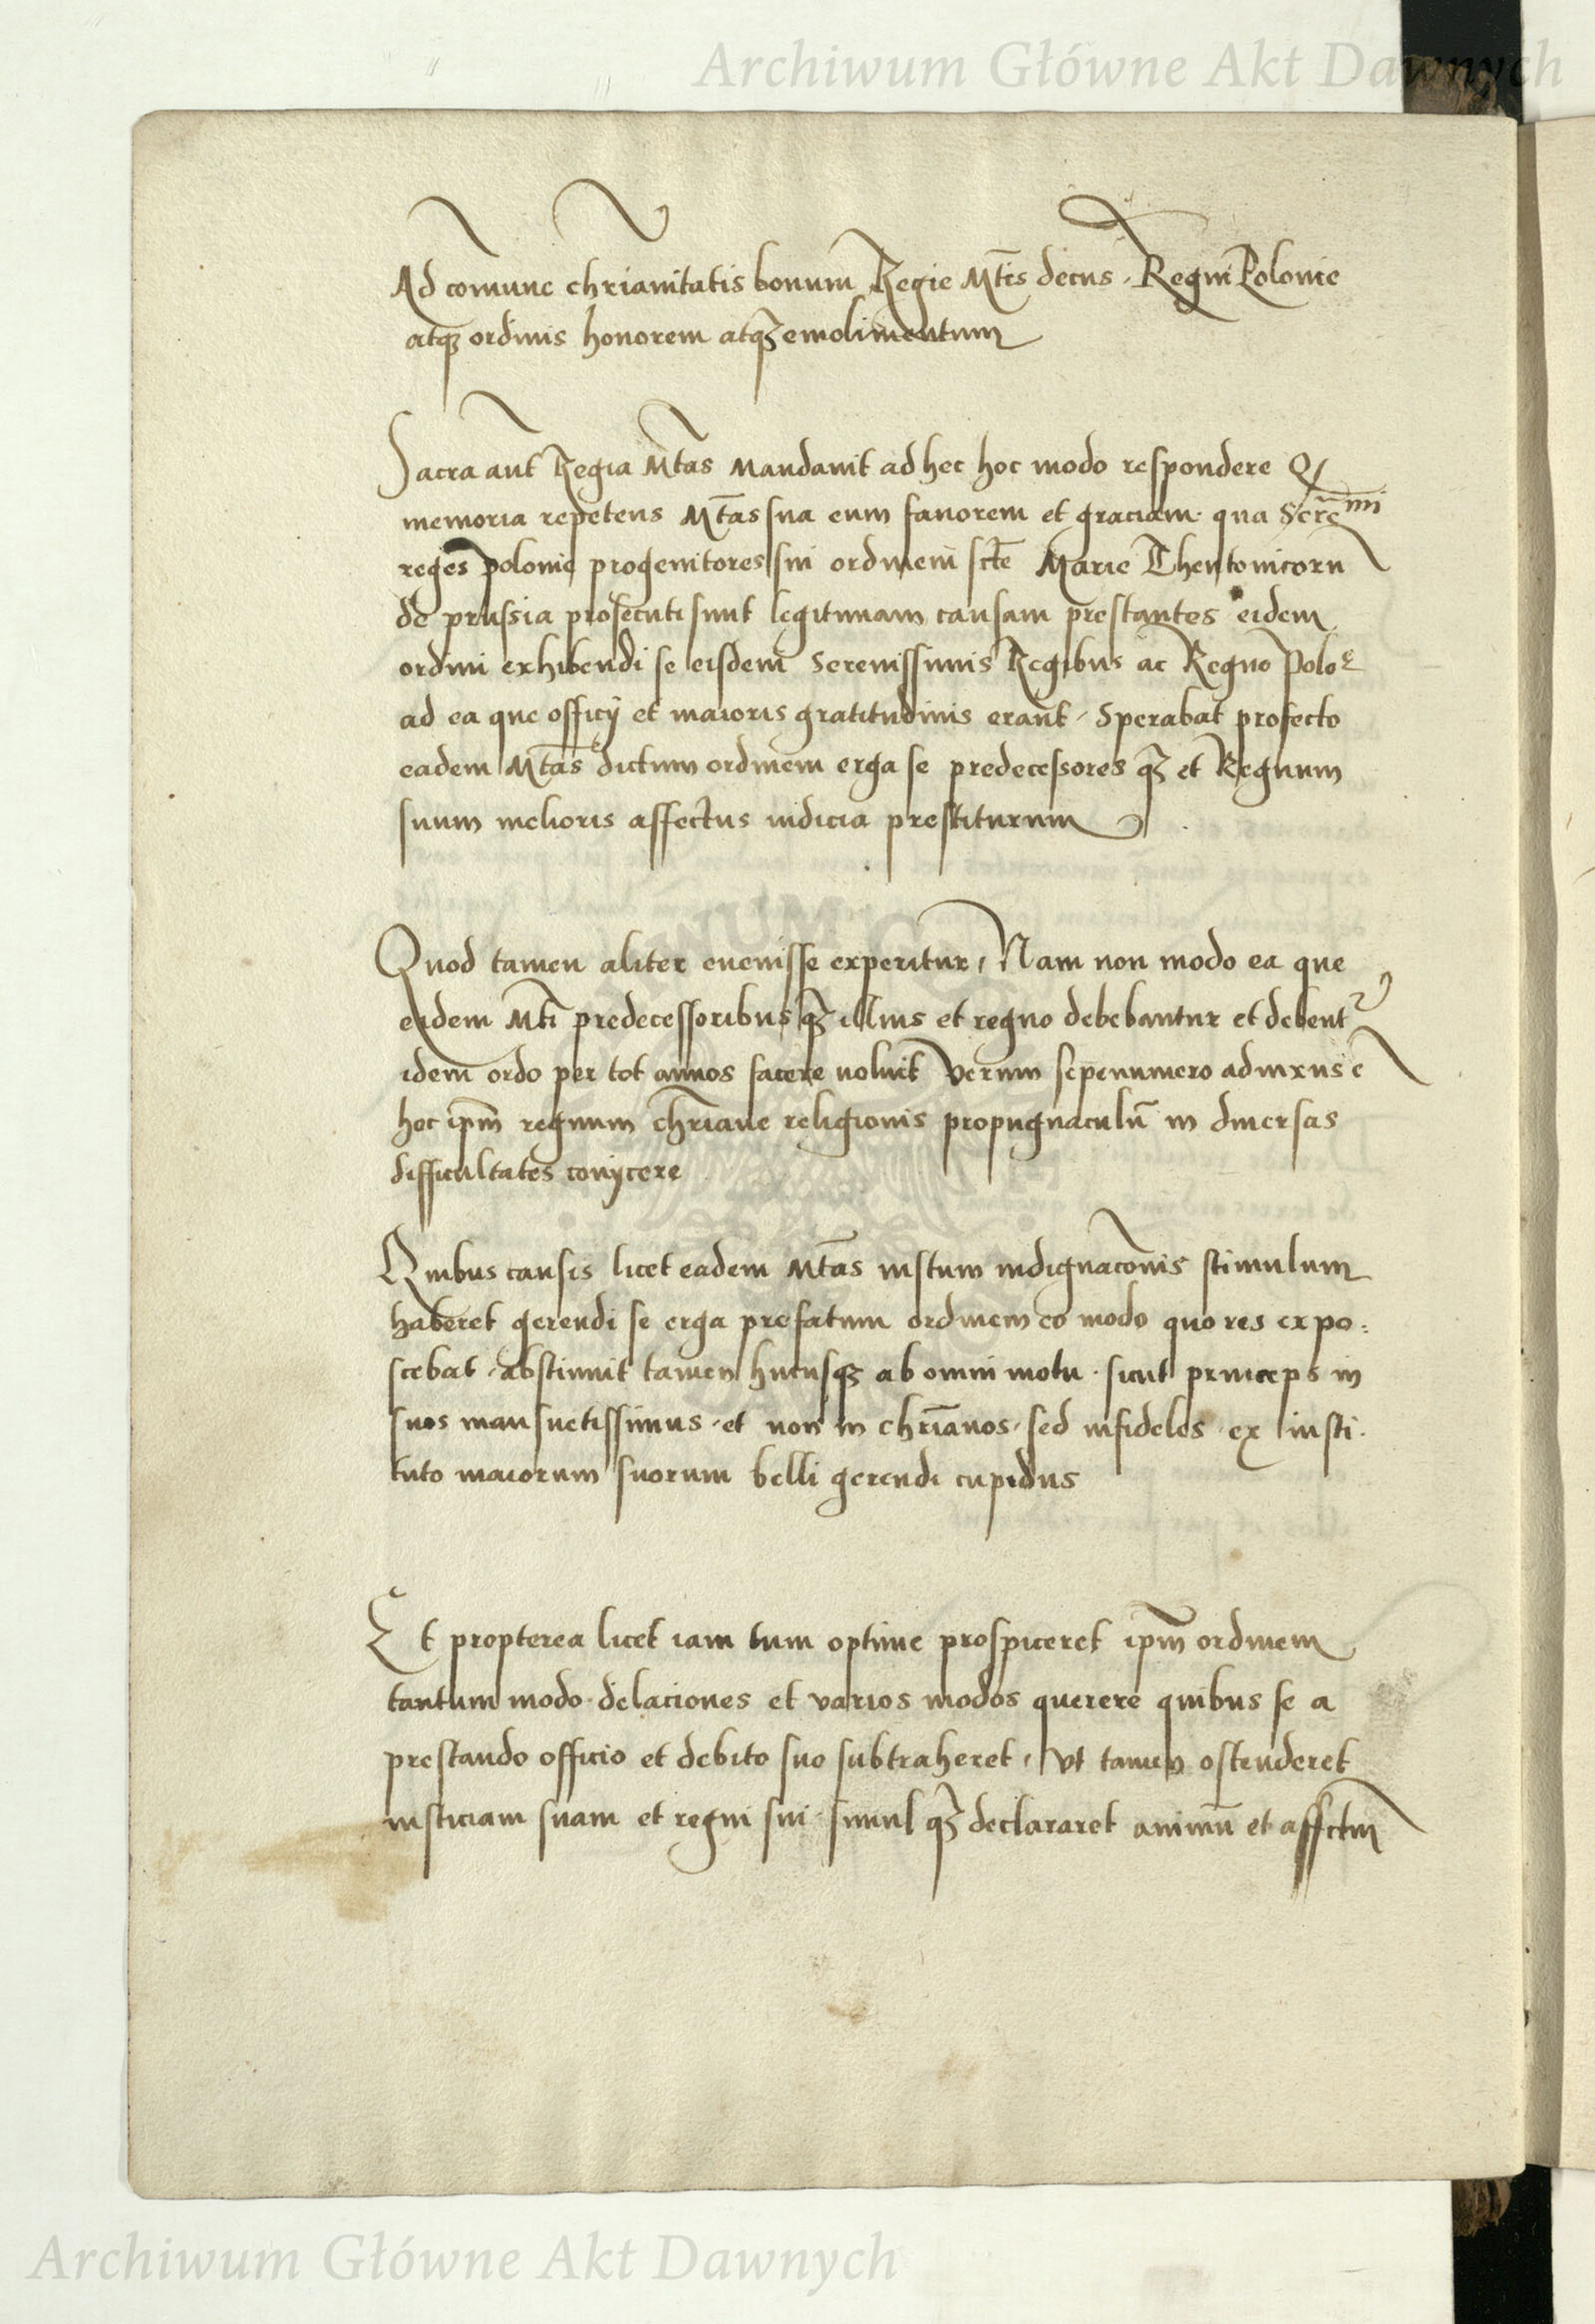 Archiwum Główne Akt Dawnych
Ad comune chrianitatis bonum Regie Mtis decus. Regni Polonie
atqꝫ ordinis honorem atqꝫ emolimentum
Sacra aut Regia Mtas Mandauit ad hec hoc modo respondere Q
memoria repetens Mtas sua eum fauorem et graciam. qua Serẽmi
reges polonie progenitores sui ordinem scte Marie Thentonicoru
de prussia prosecuti sunt legitimam causam prestantes eidem
ordini exhibendi se eisdem Serenissimis Regibus ac Regno Poloe
ad ea que officij et maioris gratitudinis erant. Sperabat profecto
eadem Mtas dictum ordinem erga se predecessores qꝫ et Regnum
suum melioris affectus indicia prestiturum
Quod tamen aliter euenisse experitur, Nam non modo ea que
eidem Mti predecessoribus qꝫ illius et regno debebantur et debent
idem ordo per tot annos facere noluit Verum sepenumero adnixus e
hoc ipm regnum chriane religionis propugnaculũ in diuersas
difficultates conijcere
Quibus causis licet eadem Mtas iustum indignacõnis stimulum
haberet gerendi se erga prefatum ordinem eo modo quo res expo:
scebat. abstinuit tamen hucusqꝫ ab omni motu. sicut princeps in
suos mansuetissimus. et non in chrianos. sed infideles. ex insti.
tuto maiorum suorum belli gerendi cupidus
Et propterea licet iam tum optime prospiceret ipm ordinem
tantum modo. delaciones et varios modos querere quibus se a
prestando officio et debito suo subtraheret, Vt tamen ostenderet
iusticiam suam et regni sui. simul qꝫ declararet animũ et affctm
Archiwum Główne Akt Dawnych